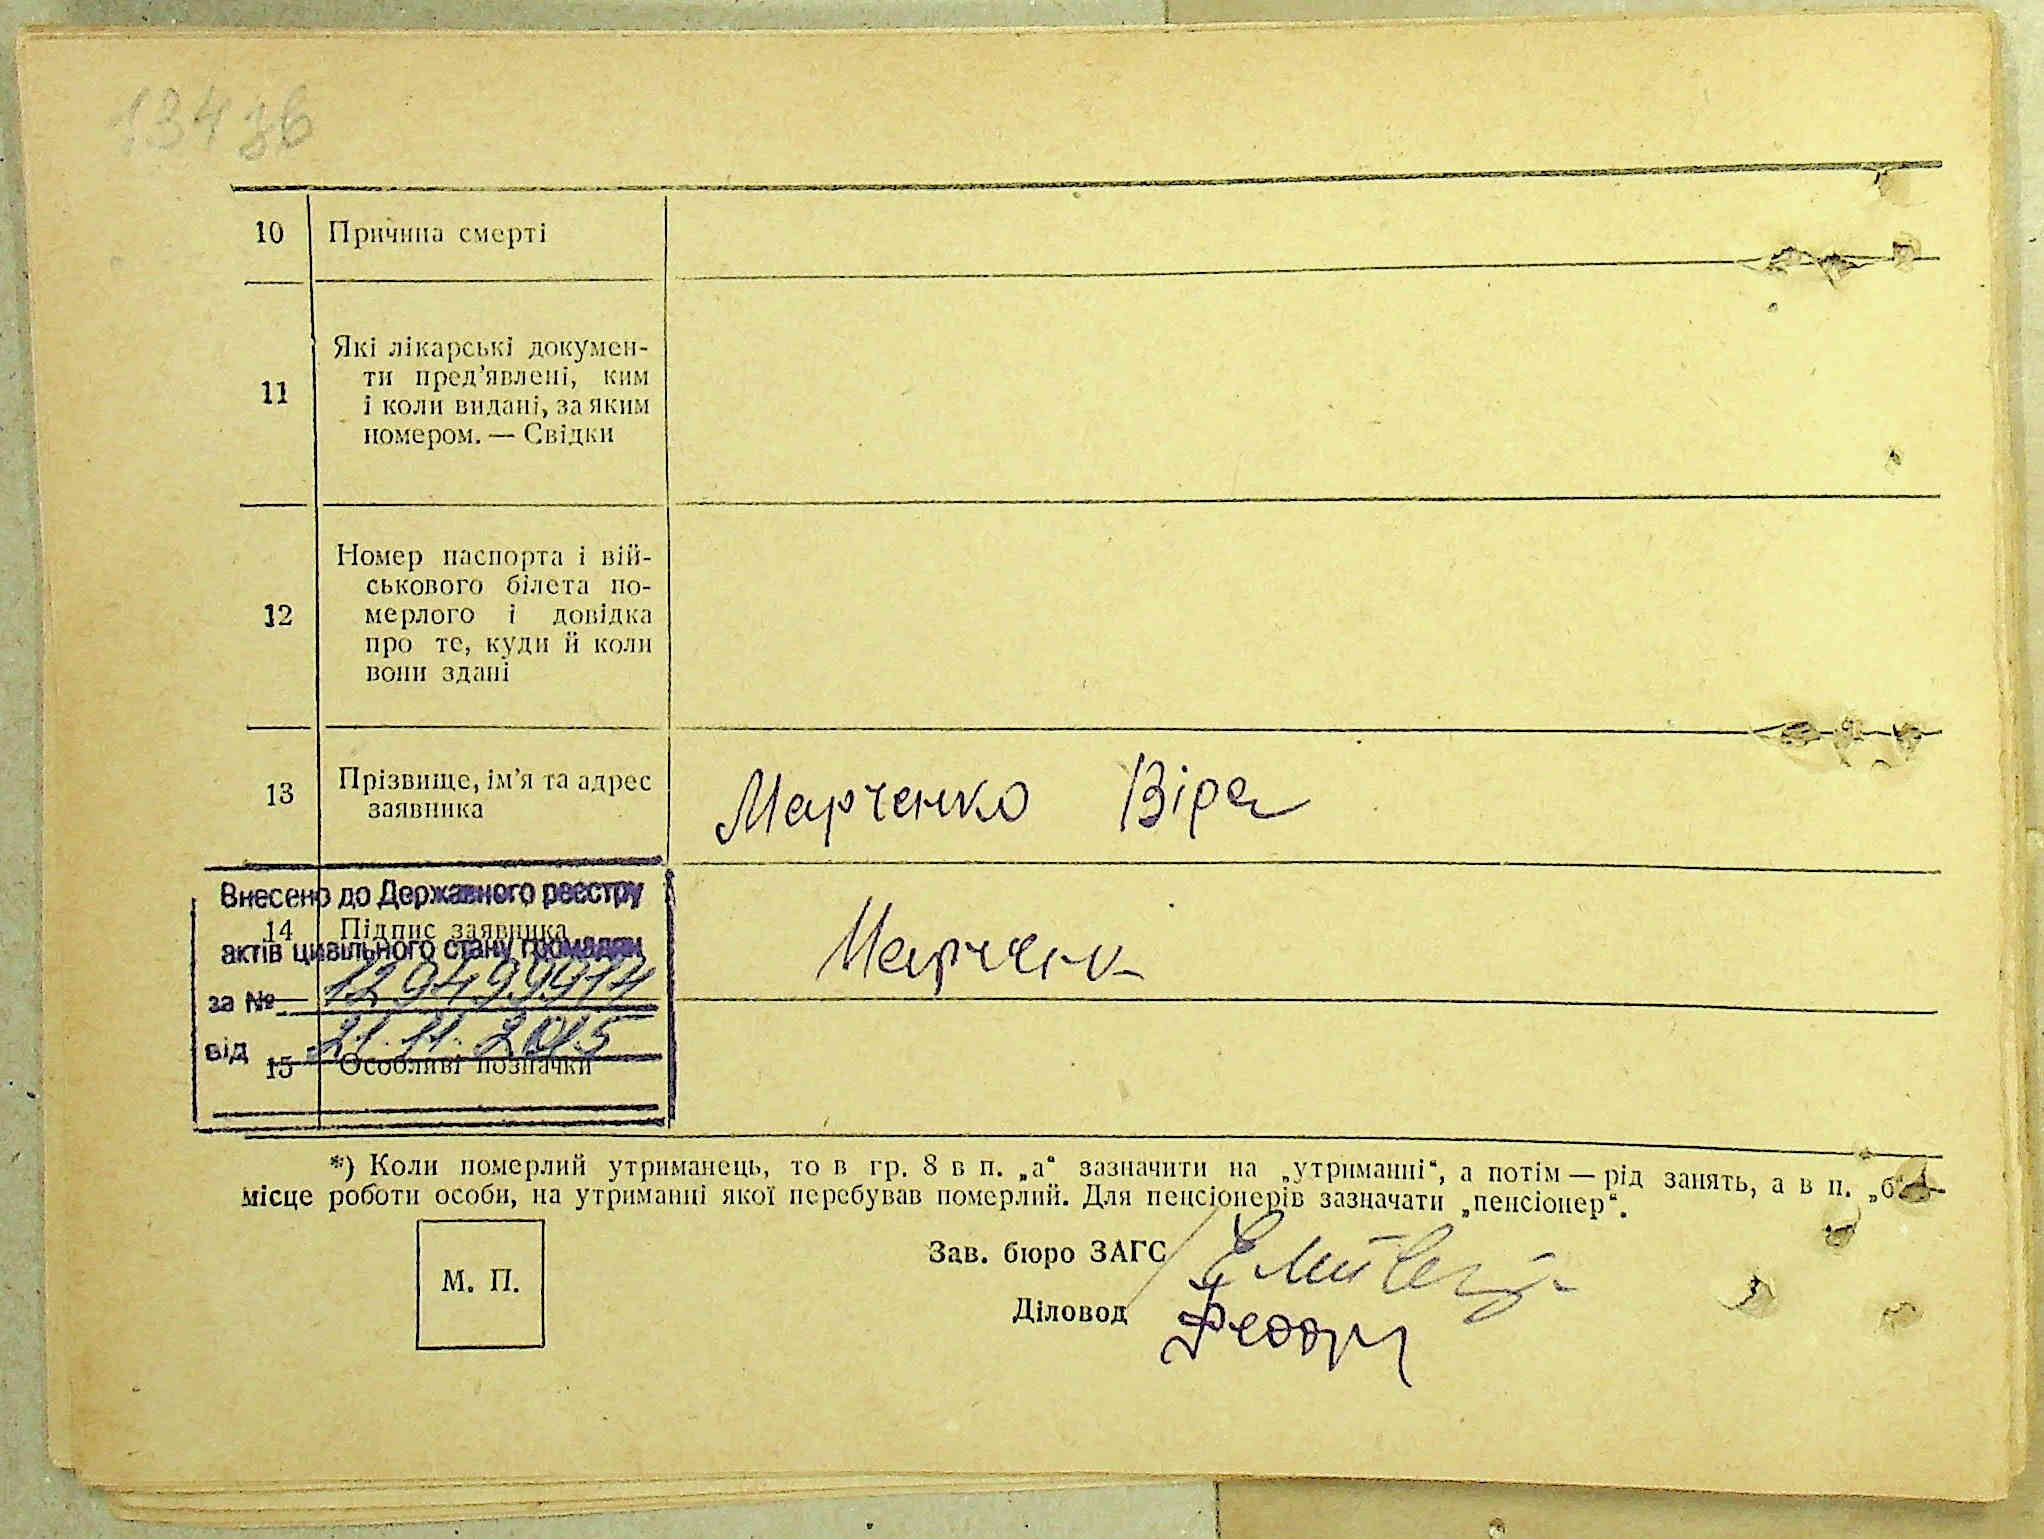 134 зв
10 Причина смерті
11 Які лікарські докумен-
ти пред’явлені, ким
і коли видані, за яким
номером. — Свідки
12 Номер паспорта і вій-
ськового білета по-
мерлого і довідка
про те, куди й коли
вони здані
13 Прізвище, ім’я та адрес
заявника
Марченко Віра
Внесено до Державного реєстру
14 Підпис заявника
Марченк
актів цивільного стану громадян
за № 129499914
від 21.11.2015
15 Особливі позначки
*) Коли померлий утриманець, то в гр. 8 в п. „а“ зазначити на „утриманні“, а потім — рід занять, а в п. „б“ —
місце роботи особи, на утриманні якої перебував померлий. Для пенсіонерів зазначати „пенсіонер“.
Зав. бюро ЗАГС
М. П.
Діловод